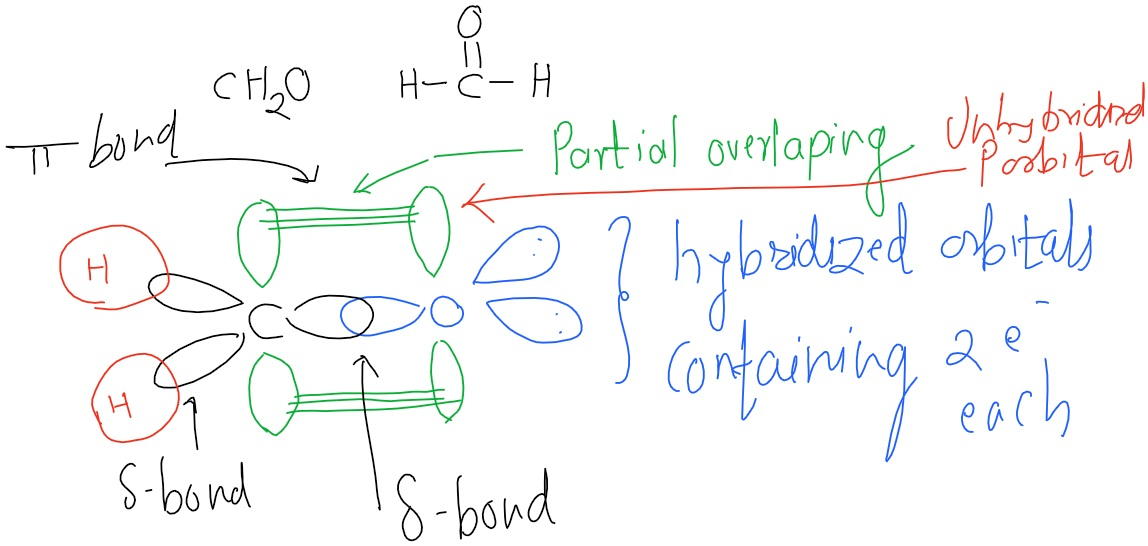 O
CH₂O
H-C-H
π bond
Partial overlaping
Unhybridized
P orbital
H
C
O
H
hybridized orbitals
containing 2 e⁻
each
δ-bond
δ-bond